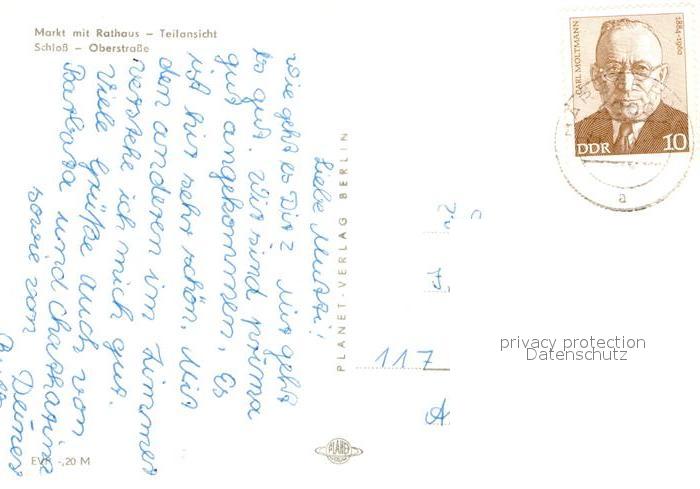 Markt mit Rathaus – Teilansicht
Schloß – Oberstraße
Liebe Mutti!
Wie geht es Dir? Mir geht
es gut. Wir sind prima
gut angekommen. Es
ist hier sehr schön. Mit
den anderen im Zimmer
verstehe ich mich gut.
Viele Grüße auch von
Barbara und Chatharina
sowie von
Deiner
EVP -,20 M
PLANET-VERLAG BERLIN
PLANET
117
A
CARL MOLTMANN
1884-1960
DDR 10
a
privacy protection
Datenschutz